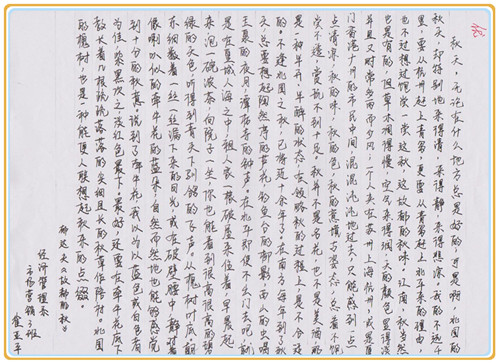 秋天,无论在什么地方总是好的;可是啊,北国的
秋天,却特别地来得清,来得静,来得悲凉。我的不远千
里,要从杭州赶上青岛,更要从青岛赶上北平来的理由,
也不过想饱尝一尝这秋,这故都的秋味。江南,秋当然
也是有的,但草木凋得慢,空气来得润,天的颜色显得淡,
并且又时常多雨而少风;一个人夹在苏州上海杭州,或厦
门香港广州的市民中间,混混沌沌地过去,只能感到一点
点清凉,秋的味,秋的色,秋的意境与姿态,总看不饱,
尝不透,赏玩不到十足。秋并不是名花,也不是美酒,那
是一种半开、半醉的状态,在领略秋的过程上,是不合适
的。不逢北国之秋,已将近十余年了。在南方每年到了秋
天,总要想起陶然亭的芦花,钓鱼台的柳影,西山的虫唱,
玉泉的夜月,潭柘寺的钟声。在北平即使不出门去吧,就
是在皇城人海之中,租人家一椽破屋来住着,早晨起
来,泡一碗浓茶,向院子一坐,你也能看到很高很高的碧
绿的天色,听得到青天下驯鸽的飞声。从槐树叶底,朝
东细数着一丝一丝漏下来的日光,或在破壁腰中,静对着
像喇叭似的牵牛花的蓝朵,自然而然地也能够感觉
到十分的秋意。说到了牵牛花,我以为以蓝色或白色者
为佳,紫黑次之,淡红色最下。最好,还要在牵牛花底下
教长着几根疏疏落落的尖细且长的秋草作陪衬。北国
的槐树,也是一种能使人联想起秋来的点缀。
郁达夫《故都的秋》
经济管理系
市场营销3班